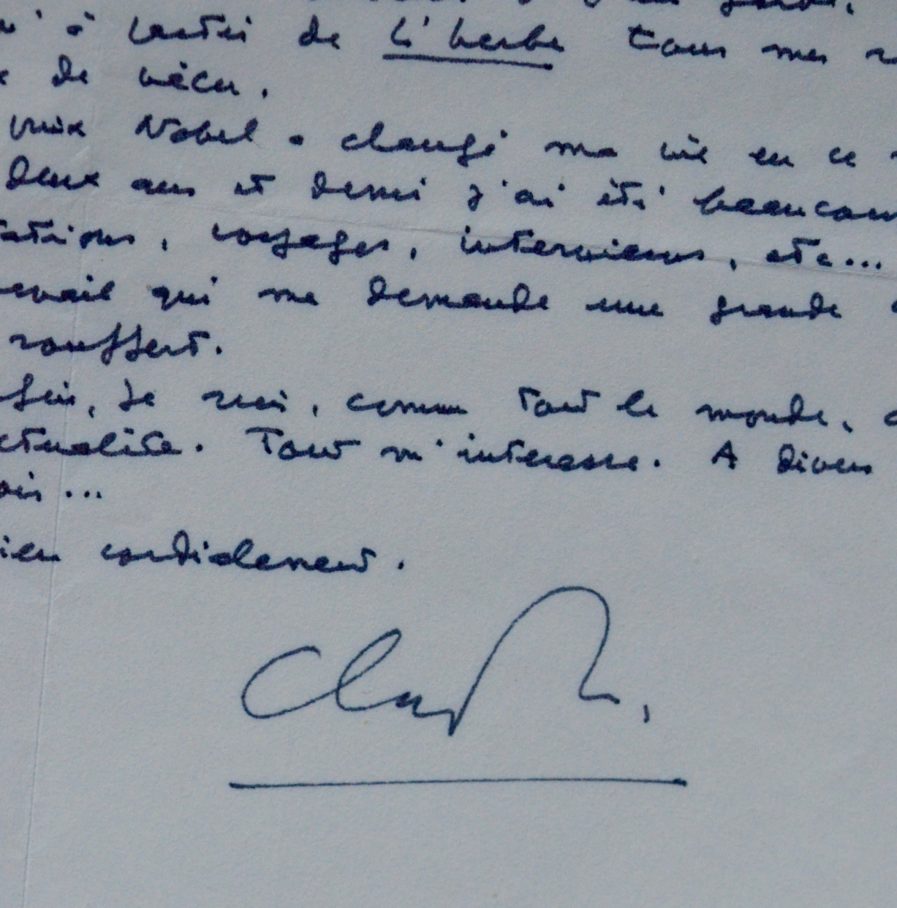 à partir de L'herbe tous mes
de vécu.
prix Nobel a changé ma vie en ce
deux ans et demi j'ai été beaucoup
tations, voyages, interviews, etc...
qui me demande une grande
souffert.
fin, je suis, comme tout le monde,
ctualité. Tout m'intéresse. A divers
ois...
ien cordialement.